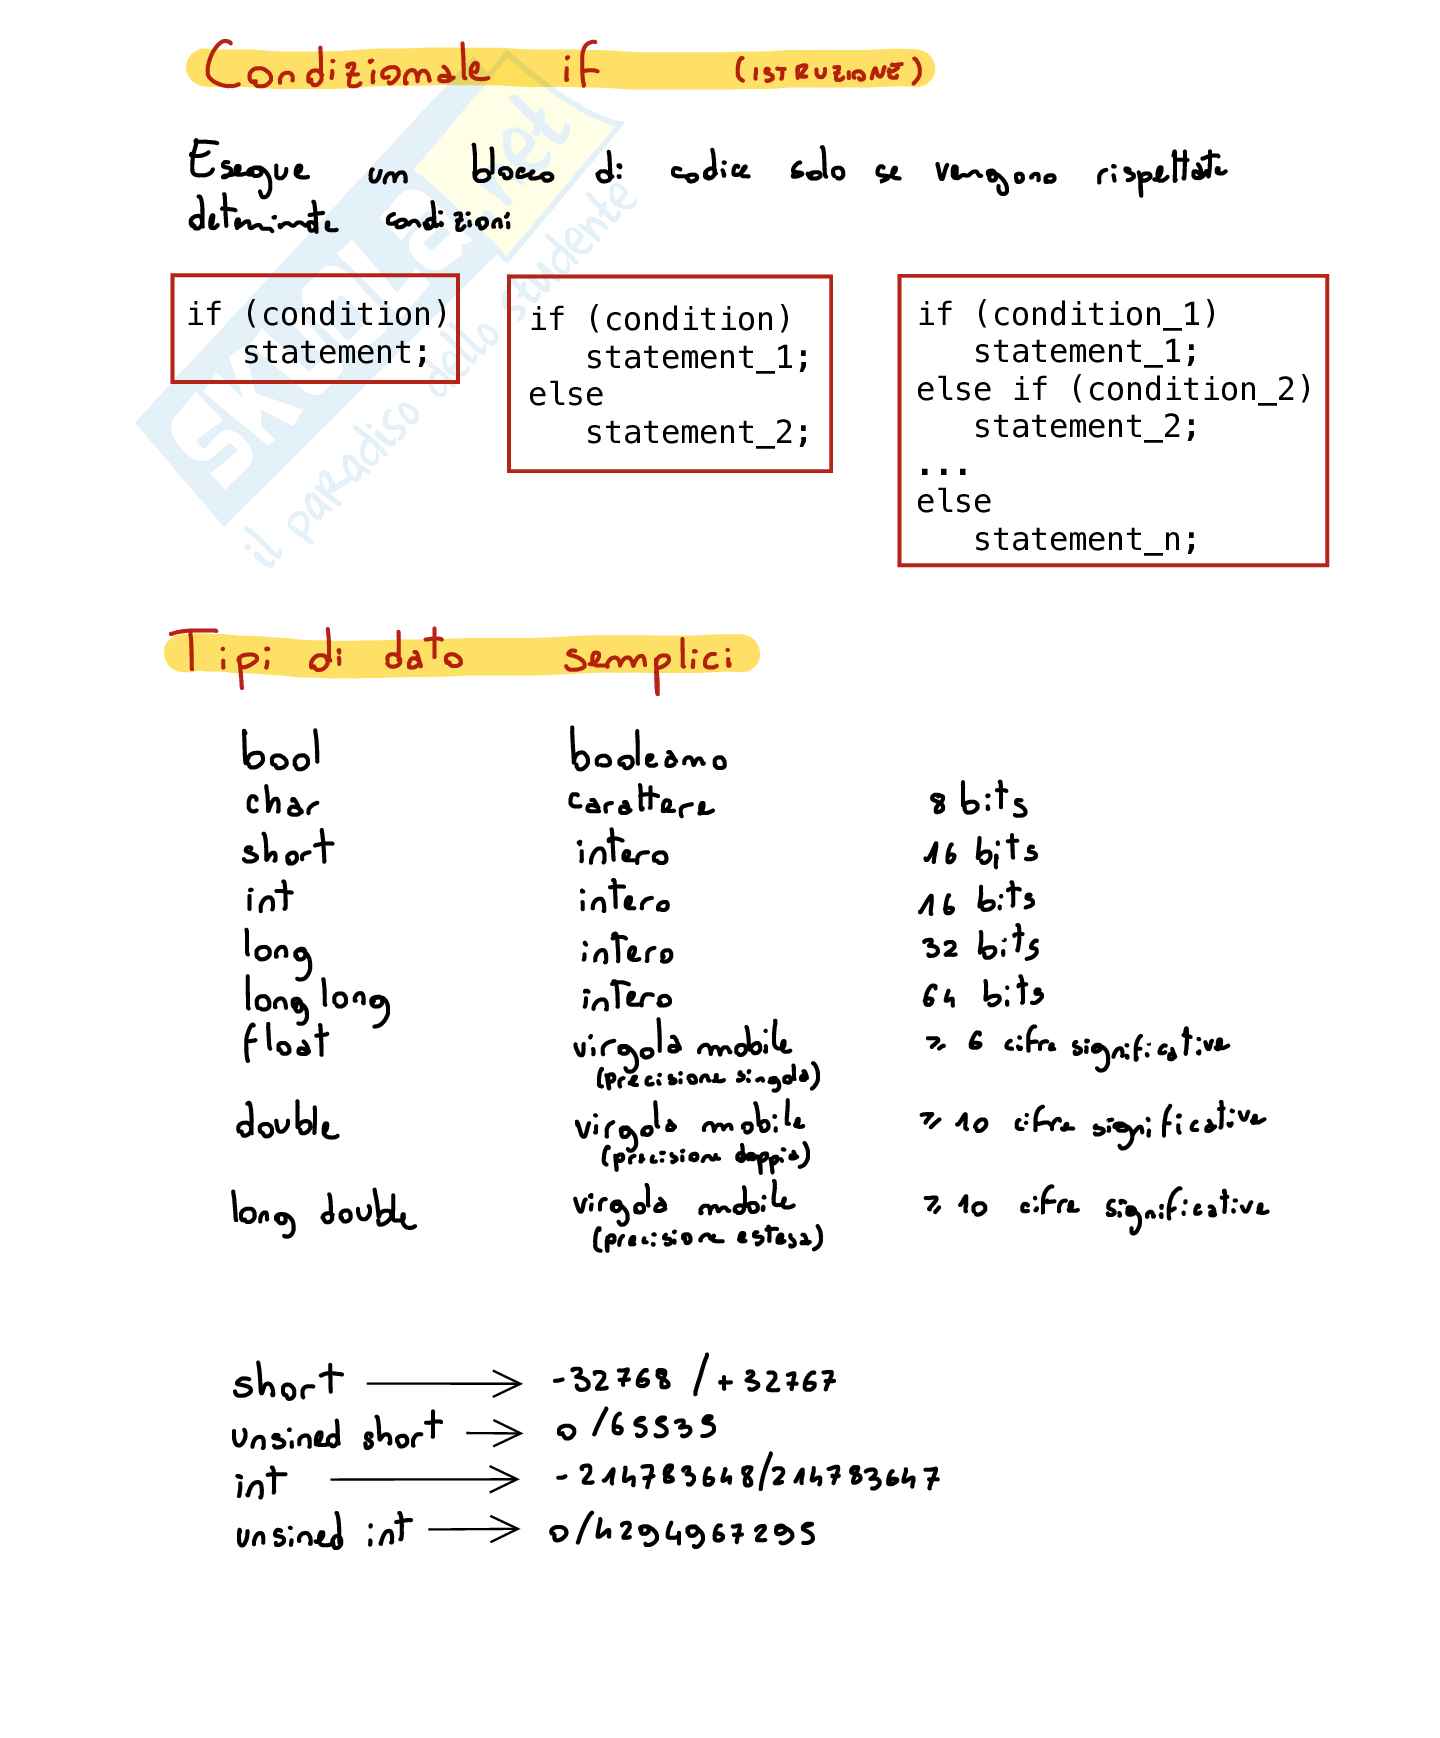 Condizionale if (ISTRUZIONE)
Esegue un blocco di codice solo se vengono rispettate
determinate condizioni
if (condition)
statement;
if (condition)
statement_1;
else
statement_2;
if (condition_1)
statement_1;
else if (condition_2)
statement_2;
...
else
statement_n;
SKUOLA.net
il paradiso dello studente
Tipi di dato semplici
bool booleano
char carattere 8 bits
short intero 16 bits
int intero 16 bits
long intero 32 bits
long long intero 64 bits
float virgola mobile ≥ 6 cifre significative
(precisione singola)
double virgola mobile ≥ 10 cifre significative
(precisione doppia)
long double virgola mobile ≥ 10 cifre significative
(precisione estesa)
short → -32768 / +32767
unsined short → 0 / 65535
int → -214783648/214783647
unsined int → 0/4294967295